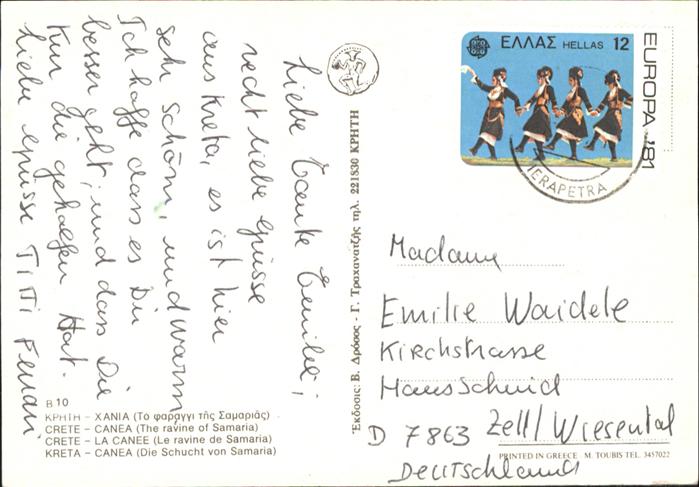 Liebe Tante Emilie,
recht liebe Grüsse
aus Kreta, es ist hier
sehr schön, und warm
Ich hoffe dass es Dir
besser geht, und dass Die
Kur die geholfen Hat.
liebe grüsse TiTi Ferrari
B 10
ΚΡΗΤΗ – ΧΑΝΙΑ (Το φαραγγι τῆς Σαμαριάς)
CRETE – CANEA (The ravine of Samaria)
CRETE – LA CANEE (Le ravine de Samaria)
KRETA – CANEA (Die Schucht von Samaria)
Ἔκδοσις: Β. Δρόσος - Γ. Τραχανατζής τηλ. 221830 ΚΡΗΤΗ
ΕΛΛΑΣ HELLAS 12
EUROPA '81
IERAPETRA
Madame
Emilie Waidele
Kirchstrasse
Hausschuid
D 7863 Zell/Wiesental
Deutschland
PRINTED IN GREECE M. TOUBIS TEL. 3457022